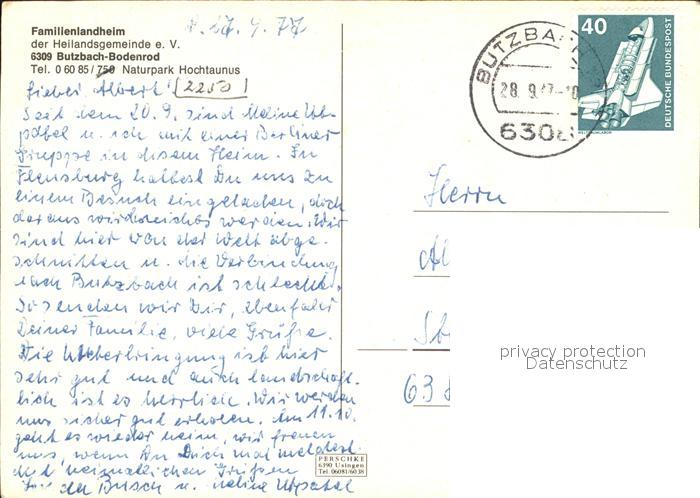 27.9.77
Familienlandheim
der Heilandsgemeinde e. V.
6309 Butzbach-Bodenrod
Tel. 0 60 85/750 Naturpark Hochtaunus
2250
Lieber Albert!
Seit dem 20.9. sind
u. ich mit einer Berliner
Gruppe in diesem Heim. In
Flensburg hattest Du uns zu
einem Besuch eingeladen, doch
daraus wird nichts werden. Wir
sind hier von der Welt abge-
schnitten u. die Verbindung
nach Butzbach ist schlecht.
So senden wir Dir, ebenfalls
Deiner Familie, viele Grüße.
Die Unterbringung ist hier
sehr gut und auch landschaft-
lich ist es herrlich. Wir werden
uns sicher gut erholen. Am 11.10.
geht es wieder heim, wir freuen
uns, wenn Du Dich mal meldest.
Mit heimatlichen Grüßen
Busch u.
PERSCHKE
6390 Usingen
Tel. 06081/6038
BUTZBACH
28.9.77-10
6308
40
DEUTSCHE BUNDESPOST
WELTRAUMLABOR
Herrn
Al
63
privacy protection
Datenschutz